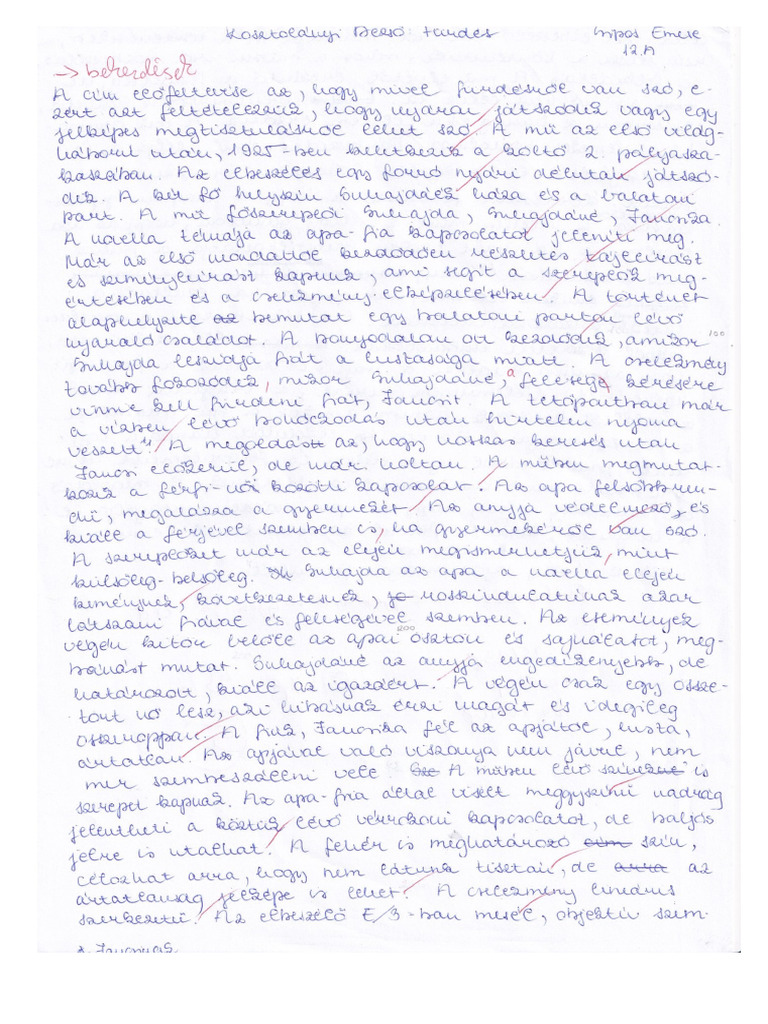 Kosztolányi Dezső: Fürdés
Emese
12.A
→ bekezdések
A cím előfeltevése az, hogy mivel fürdésről van szó, e-
zért azt feltételezzük, hogy nyáron játszódik vagy egy
jelképes megtisztulásról lehet szó. A mű az első világ-
háború után, 1925-ben keletkezik a költő 2. pályasza-
kaszában. Az elbeszélés egy forró nyári délután játszó-
dik. A két fő helyszín Suhajdáék háza és a balatoni
part. A mű főszereplői Suhajda, Suhajdáné, Jancsika.
A novella témája az apa-fia kapcsolatot jeleníti meg.
Már az első mondatok kezdődően részletes tájleírást
és személyleírást kapunk, ami segít a szereplők meg-
értésében és a cselekmény elképzelésében. A történet
alaphelyzete az bemutat egy balatoni parton lévő
nyaraló családot. A bonyodalom ott kezdődik, amikor
100
Suhajda leszidja fiát a lustasága miatt. A cselekmény
tovább fokozódik, mikor Suhajdáné, a felesége kérésére
vinnie kell fürdeni fiát, Jancsit. A tetőpontban már
a vízben lévő bohóckodás után hirtelen nyoma
veszett. A megoldás az, hogy hosszas keresés után
Jancsi előkerül, de már holtan. A műben megmutat-
kozik a férfi-nő közötti kapcsolat. Az apa felsőbbren-
dű, megalázza a gyermekét. Az anyja védelmező, és
kiáll a férjével szemben is, ha gyermekéről van szó.
A szereplőket már az elején megismerhetjük, mint
külsőleg-belsőleg. Suhajda az apa a novella elején
keménynek, következetesnek, rosszindulatúnak akar
látszani fiával és feleségével szemben. Az események
200
végén kitör belőle az apai ösztön és sajnálatot, meg-
bánást mutat. Suhajdáné az anyja engedékenyebb, de
határozott, kiáll az igazáért. A végén csak egy össze-
tört nő lesz, aki hibásnak érzi magát és idegileg
összeroppan. A fiuk, Jancsika fél az apjától, lusta,
ártatlan. Az apjával való viszonya nem javul, nem
mer szembeszállni vele. A műben lévő színeknek is
szerepet kapnak. Az apa-fia által viselt meggyszínű nadrág
jelentheti a köztük lévő vérrokoni kapcsolatot, de baljós
jelre is utalhat. A fehér is meghatározó szín,
célozhat arra, hogy nem látunk tisztán, de arra az
ártatlanság jelképe is lehet. A cselekmény lineáris
szerkezetű. Az elbeszélő E/3-ban mesél, objektív szem-